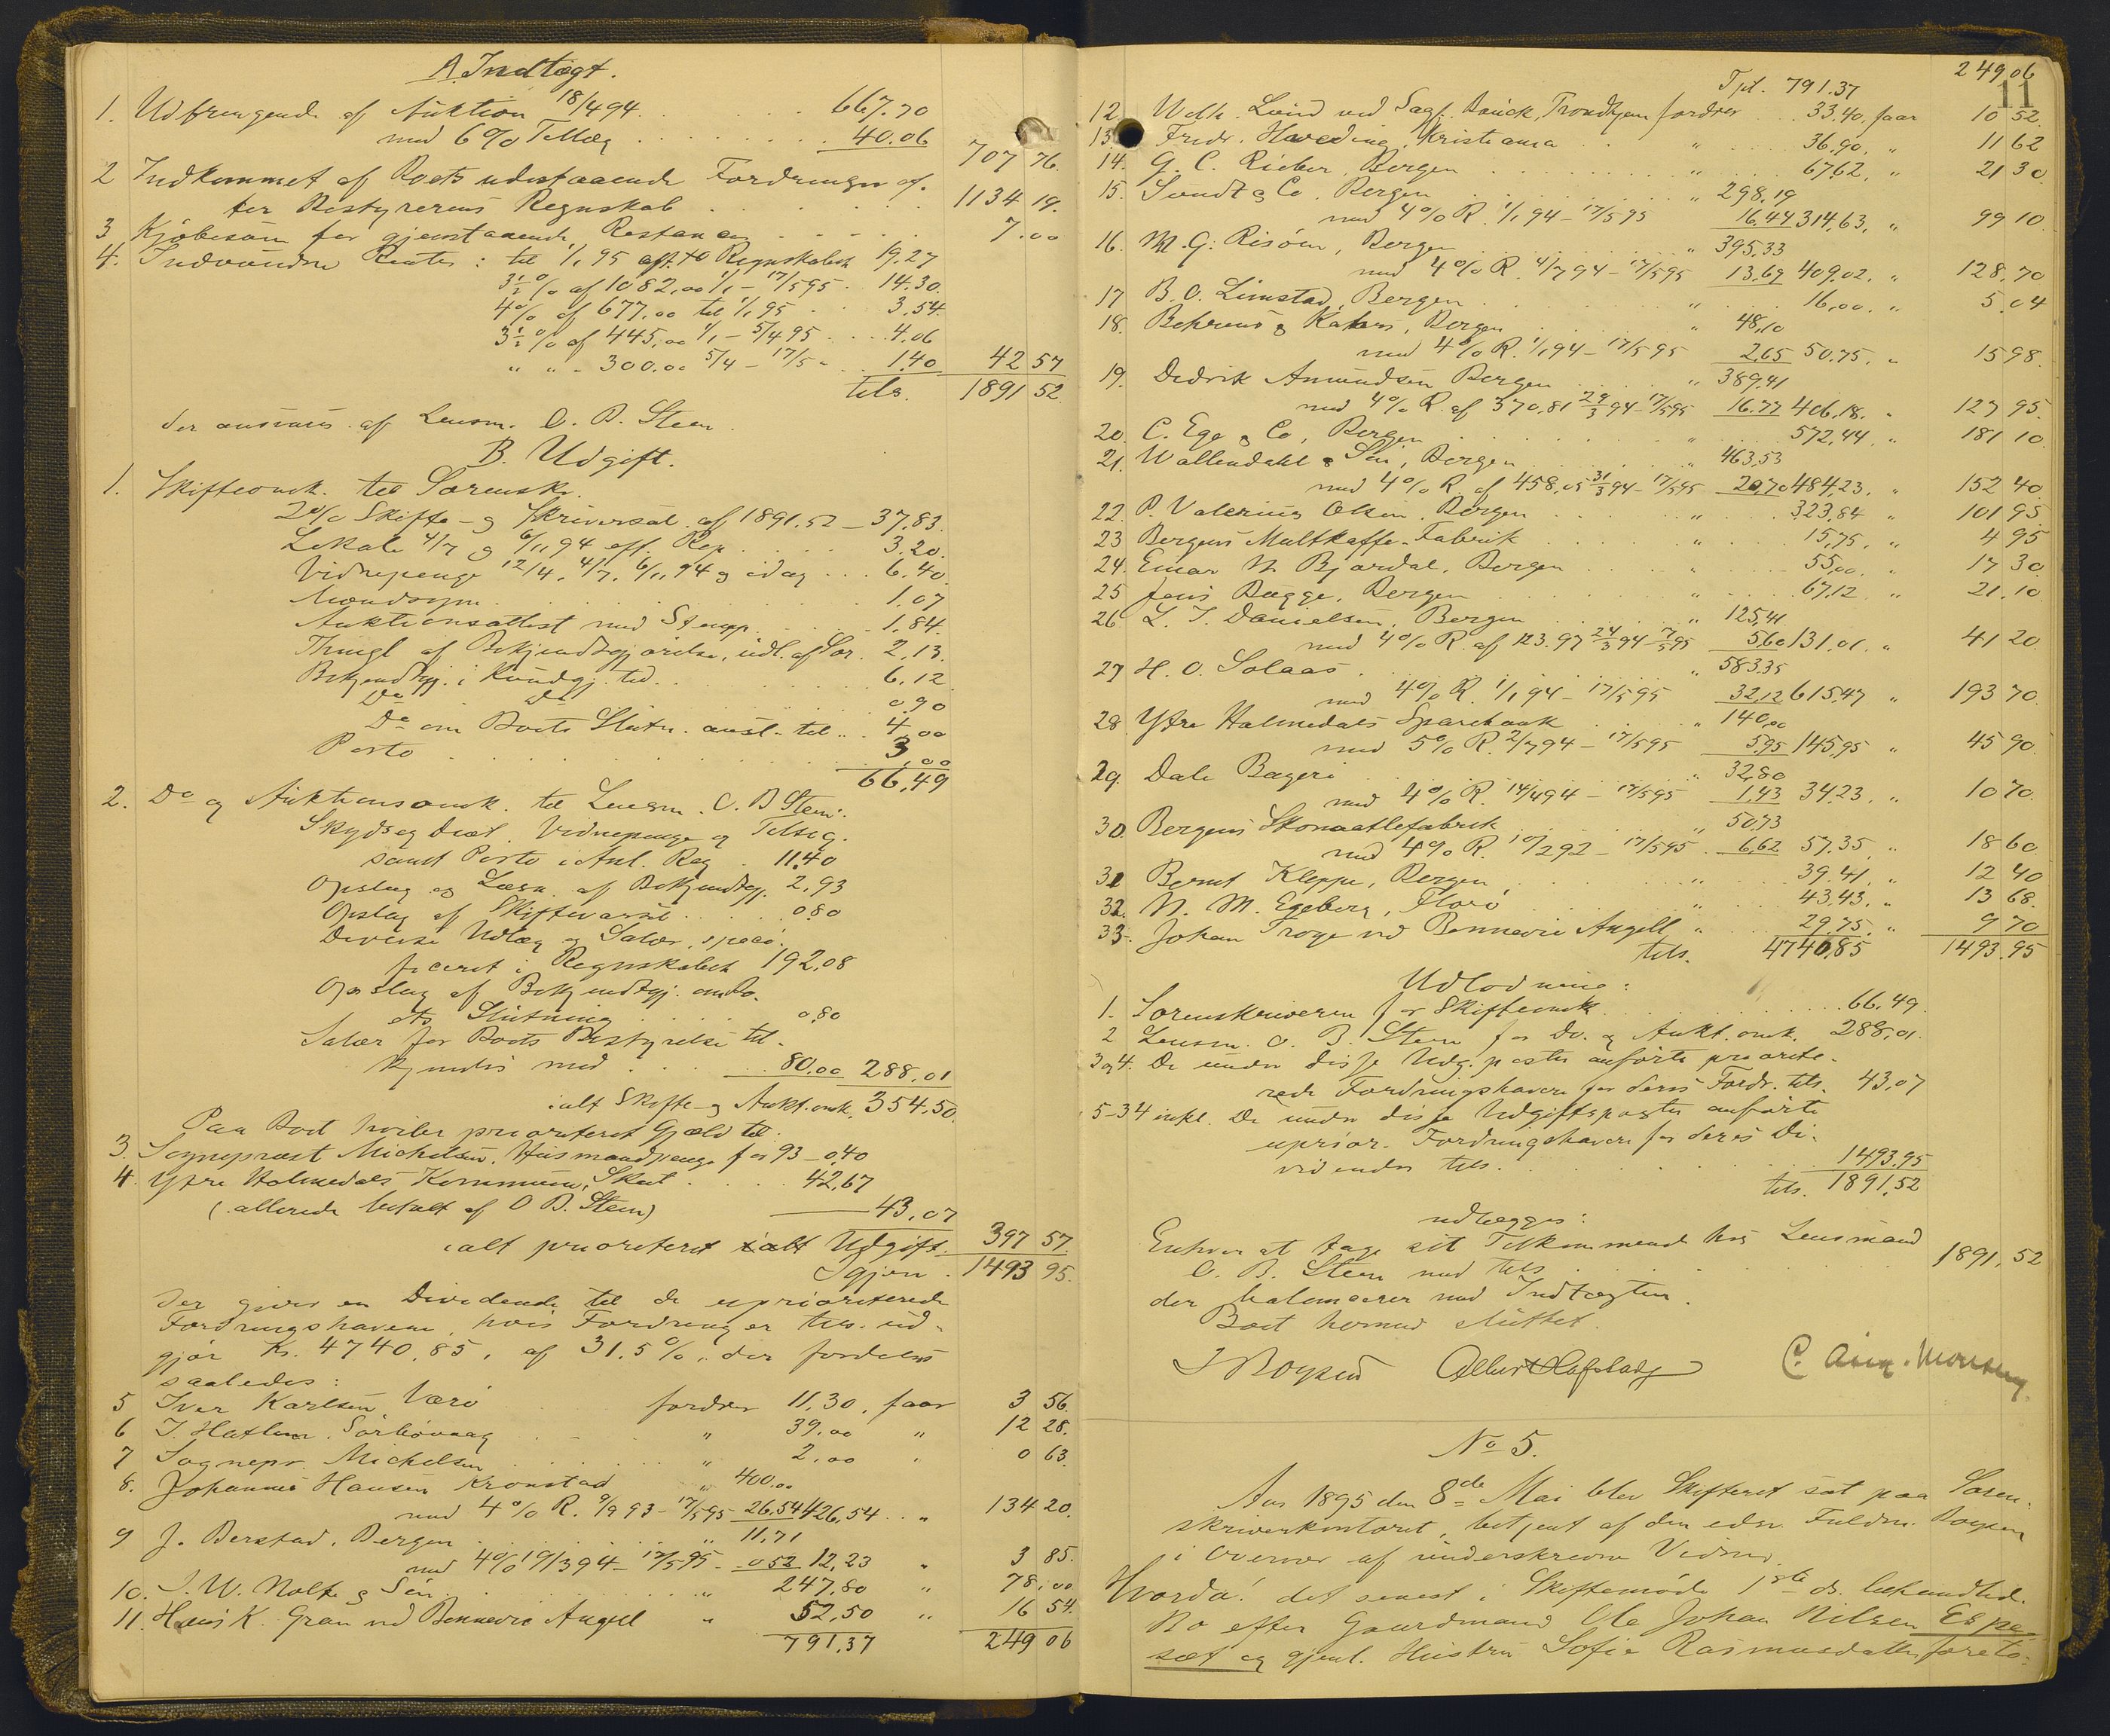 A. Indtægt.
1. Udbringende af Auktion 18/4 94 . . . 667.70
med 6% Tillæg . . . 40.06
707 76.
2 Indkommet af Boets udestaaende Fordringer ef-
ter Bestyrerens Regnskab . . . 1134 19.
3 Kjøbesum for gjenstaaende Restancer . . . 7.00
4. Indvundne Renter: til 1/1 95 eft. Regnskabet 19.27
3½% af 1082,00 1/1 - 17/5 95 . 14.30.
4% af 677.00 til 1/1 95 . . 3.54
3½% af 445,00 1/1 - 5/4 95 . . . 4.06
" " - 300.00 5/4 - 17/5 - . . 1.40 42 57
tils. 1891 52
der ansvares af Lensm. O. B. Steen.
B. Udgift.
1. Skifteomk. til Sorenskr.
2% Skifte- og Skriversal. af 1891.52 - 37.83.
Lokale 4/7 og 6/11 94 eft. Reg. . . . 3.20.
Vidnepenge 12/4, 4/7, 6/11 94 og idag . . . 6.40.
. . . 1.07
Auktionsattest med Stempp. . . . 1.84.
Thingl. af Bekjendtgjørelse, udl. af Sor. 2,13.
Bekjendtgj. i Kundgj. tid. . . . 6,12
Do Do . . . 0,90
Do om Boets Slutn. ansl. til . . 4,00
Porto . . . 3,00
66,49
2. Do og Auktionsomk. til Lensm. O. B Steen:
Skyds og Diæt. Vidnepenge og Tilsig.
samt Porto i Anl. Reg . 11.40
Opslag og Læsn. af Bekjendtgj. 2,93
Opslag af Skiftevarsel . . . 0.80
Diverse Udlæg og Salær, speci-
ficeret i Regnskabet 192,08
Opslag af Bekjendtgj. om Bo-
ets Slutning . . . 0.80
Salær for Boets Bestyrelse til-
kjendes med . . . 80.00 288,01
ialt Skifte- og Aukt. omk. 354.50.
Paa Boet hviler prioriteret Gjæld til:
3. Sogneprest Michelsen, Husmandpenge for 93 - 0,40
4. Ytre Holmedals Kommune, Skat . . . 42,67
(allerede betalt af O B. Steen) 43,07
ialt prioriteret Udgift. 397 57.
Igjen . 1493 95.
Der gives en Dividende til de uprioriterede
Fordringshavere, hvis Fordringer tils. ud-
gjør Kr. 4740.85, af 31.5%, der fordeles
saaledes:
5 Iver Karlsen Værø fordrer 11.30, faar 3 56.
6 I. Hatlem, Sørbøvaag . . . " 39.00 " 12 28.
7 Sognepr. Michelsen . . . " 2,00 " 0 63.
8. Johannes Hansen Kronstad " 400,00
med 4% R. 9/9 93 - 17/5 95 26,54 426,54 . . " 134 20.
9 J. Berstad, Bergen . . . " 11,71
med 4% 19/3 94 - 17/5 95 - 0 52 12,23 " 3 85.
10. J. W. Nolte & Søn . . . " 247,80 " 78,00
11. Hans K. Gran ved Bennevie Angell " 52,50 " 16 54.
791,37 249 06
249 06
11
Tpt. 791.37
12. Wilh. Lund ved Sagf. Bauck, Trondhjem fordrer . . 33.40. faar 10 52.
13. Fredr. Harceding, Kristiania . . " . . . 36.90. " 11 62
14. G. C. Rieber, Bergen . . . " . . . 67,62, " 21 30
15. Sundt & Co, Bergen . . . " 298,19
med 4% R. 1/1 94 - 17/5 95 16.44 314,63, " 99 10.
16. M. G. Risøen, Bergen . . . " 395,33
med 4% R. 4/7 94 - 17/5 95 13.69 409.02. " 128,70
17 B. O. Limstad, Bergen . . . " . . . 16,00. " 5,04
18. Behrens & Kahrs, Bergen . . . " 48,10
med 4% R. 1/1 94 - 17/5 95 2,65 50.75. " 15 98.
19. Didrik Amundsen Bergen . . . " 389,41
med 4% R. af 370,81 29/3 94 - 17/5 95 16.77 406,18. " 127 95.
20. C. Ege & Co, Bergen . . . " . . . 572,44 " 181 10.
21. Wallendahl & Søn, Bergen . . . " 463,53
med 4% R. af 458,05 31/3 94 - 17/5 95 20,70 484,23. " 152 40.
22. P. Valerius Olsen, Bergen . . . " . . . 323,84 " 101 95
23 Bergens Maltkaffe-Fabrik . . . " . . . 15,75. " 4 95
24. Einar N. Bjørdal, Bergen . . . " . . . 55,00. " 17 30
25 Jens Bugge, Bergen . . . " . . . 67,12. " 21.10
26 L. J. Danielsen, Bergen . . . " 125,41
med 4% R. af 123.97 24/3 94 - 7/5 95 5,60 131,01. " 41 20.
27 H. O. Solaas . . . " 583.35
med 4% R. 1/1 94 - 17/5 95 32,12 615,47 " 193 70.
28 Ytre Holmedals Sparebank . . . " 140,00
med 5% R. 2/7 94 - 17/5 95 5,95 145,95 " 45 90.
29. Dale Bageri . . . " 32,80
med 4% R. 14/4 94 - 17/5 95 1,43 34,23. " 10 70.
30. Bergens Skomatlefabrik . . . " 50,73
med 4% R. 10/2 92 - 17/5 95 . 6,62 57.35. " 18 60.
31 Bernt Kleppe, Bergen . . . " . . . 39.41. " 12 40
32. N. M. Egeberg, Florø . . . " . . . 43,43. " 13 68.
33. Johan Troye ved Bennevie Angell " . . . 29.75. " 9 70
tils. 4740,85 1493.95
Udlodning:
1. Sorenskriveren for Skifteomk. . . . 66.49.
2 Lensm. O. B. Steen for Do. og Aukt. omk. 288,01.
3 og 4. De under disse Udg. poster anførte priorite-
rede Fordringshavere for deres Fordr. tils. 43,07
5-34 inkl. De under disse Udgiftsposter anførte
uprior. Fordringshavere for deres Di-
videnden tils. . . . 1493.95
tils. 1891,52
udlægges:
Enhver at tage sit Tilkommende hos Lensmand
O. B. Steen med tils. . . . 1891,52
der balancerer med Indtægten.
Boet hermed sluttet.
J Boysen Albert Hafstad C. Aug. Monsen
No 5.
Aar 1895 den 8de Mai blev Skifteret sat paa Soren-
skriverkontoret, betjent af den edsv. Fuldm. Boysen
i Overvær af underskrevne Vidner.
Hvorda: det senest i Skiftemøde 1ste ds. behandled.
Bo efter Gaardmand Ole Johan Nilsen Espe-
sæt og gjenl. Hustru Sofie Rasmusdatter foreto-